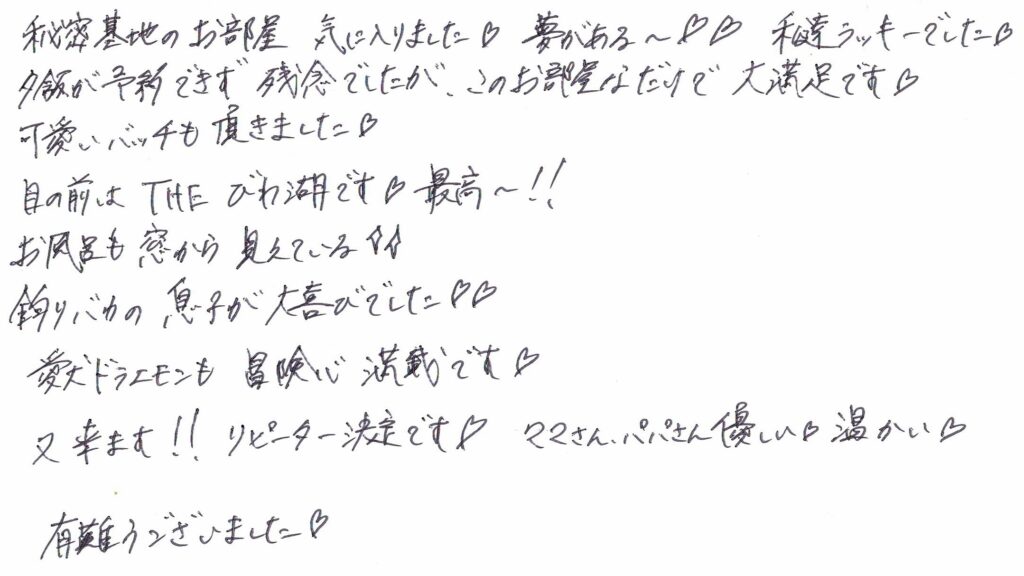 秘密基地のお部屋 気に入りました♡ 夢がある～♡♡ 私達ラッキーでした♡
夕飯が予約できず 残念でしたが、このお部屋なだけで 大満足です♡
可愛いバッチも頂きました♡
目の前は THE びわ湖です♡ 最高～!!
お風呂も窓から 見えている
釣りバカの 息子が大喜びでした♡♡
愛犬ドラエモンも 冒険心 満載です♡
又来ます!! リピーター決定です♡ ママさん、パパさん優しい♡ 温かい♡
有難うございました♡